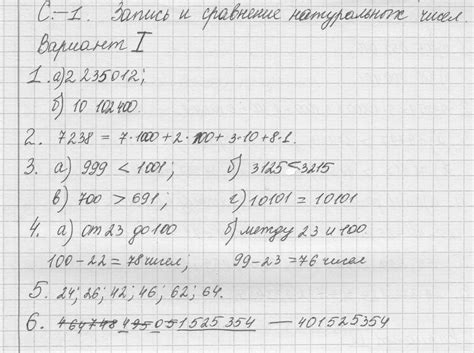 С.-1. Запись и сравнение натуральных чисел
Вариант I
1. а) 2 235012;
б) 10 102400.
2. 7238 = 7·1000+2·100+3·10+8·1.
3. а) 999 < 1001; б) 3125<3215
в) 700 > 691; г) 10101 = 10101
4. а) от 23 до 100 б) между 23 и 100
100-22=78 чисел; 99-23=76 чисел
5. 24; 26; 42; 46; 62; 64.
6. 464748495051525354 — 401525354